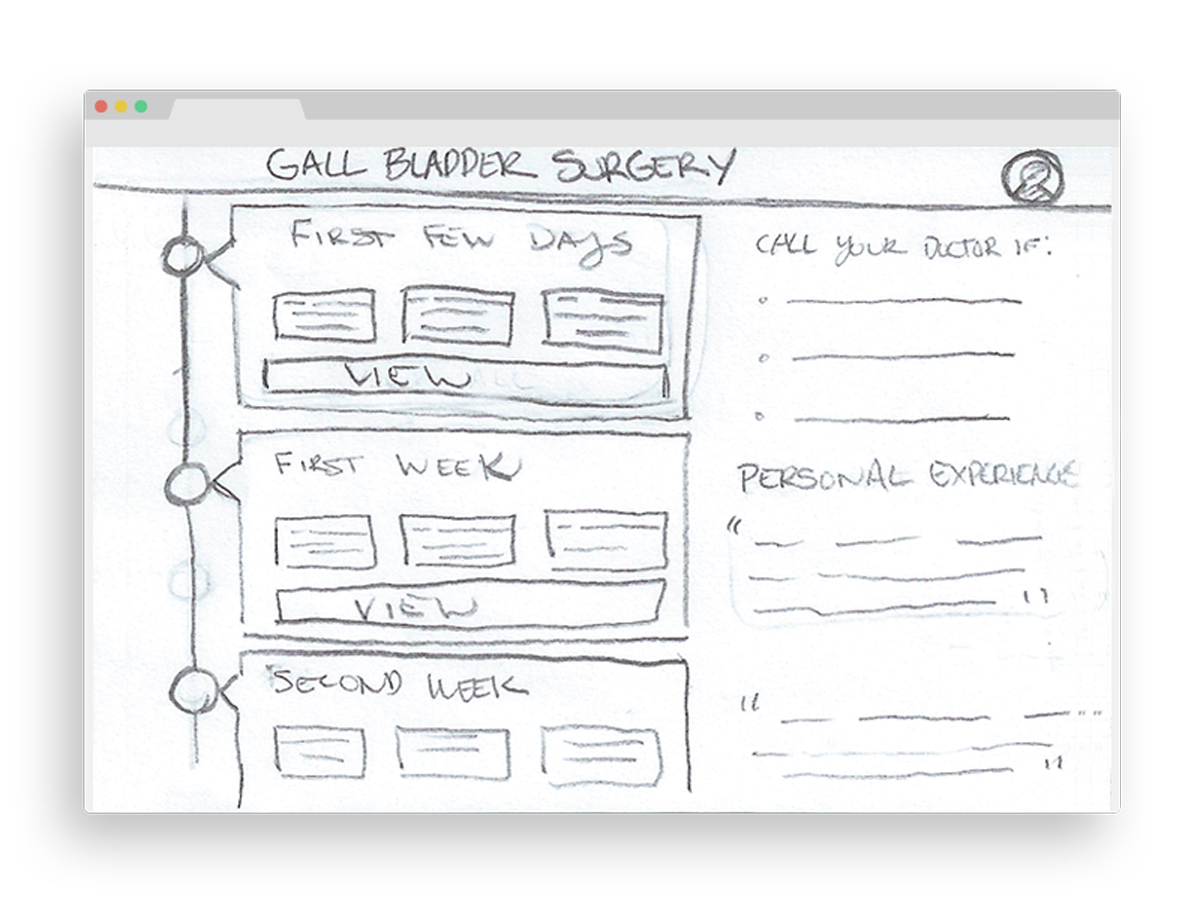 GALL BLADDER SURGERY
FIRST FEW DAYS
VIEW
FIRST WEEK
VIEW
SECOND WEEK
CALL YOUR DOCTOR IF:
PERSONAL EXPERIENCE
"
"
"
"